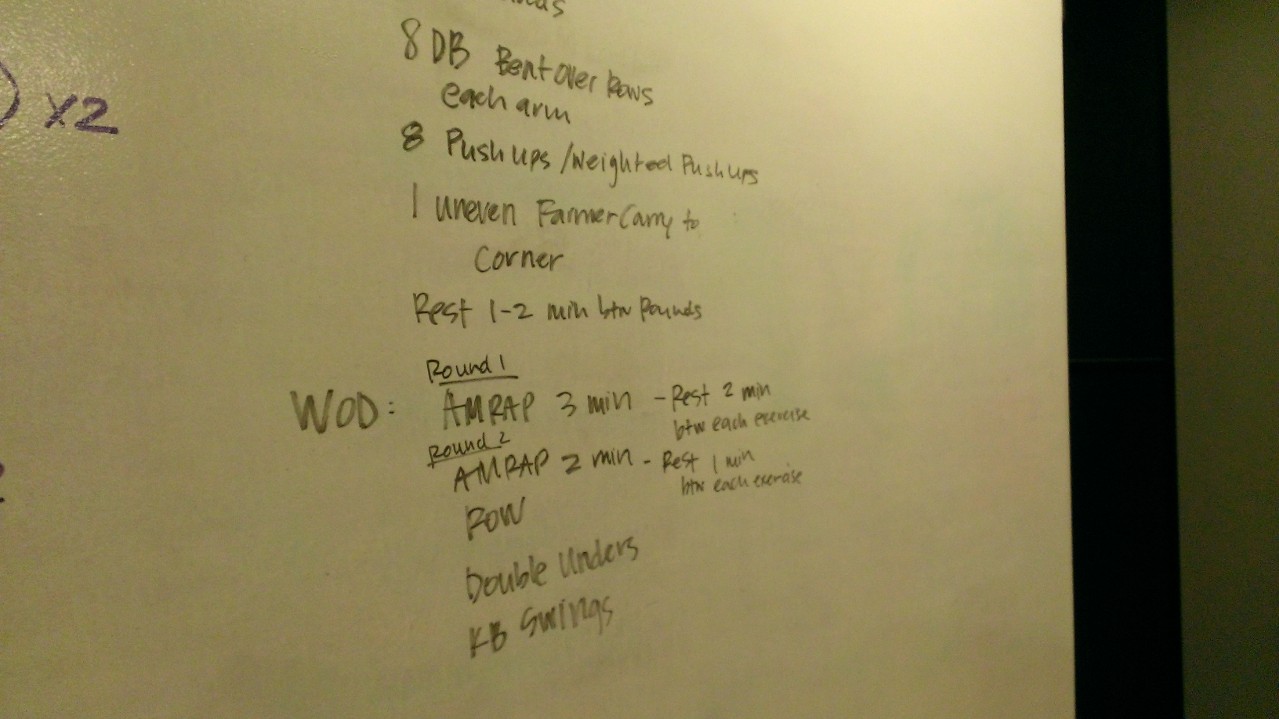 8 DB Bent over Rows
each arm
x2
8 Push ups / Weighted Push ups
1 uneven Farmer Carry to
Corner
Rest 1-2 min btw Rounds
Round 1
WOD: AMRAP 3 min - Rest 2 min
btw each exercise
Round 2
AMRAP 2 min - Rest 1 min
btw each exercise
Row
Double Unders
KB Swings